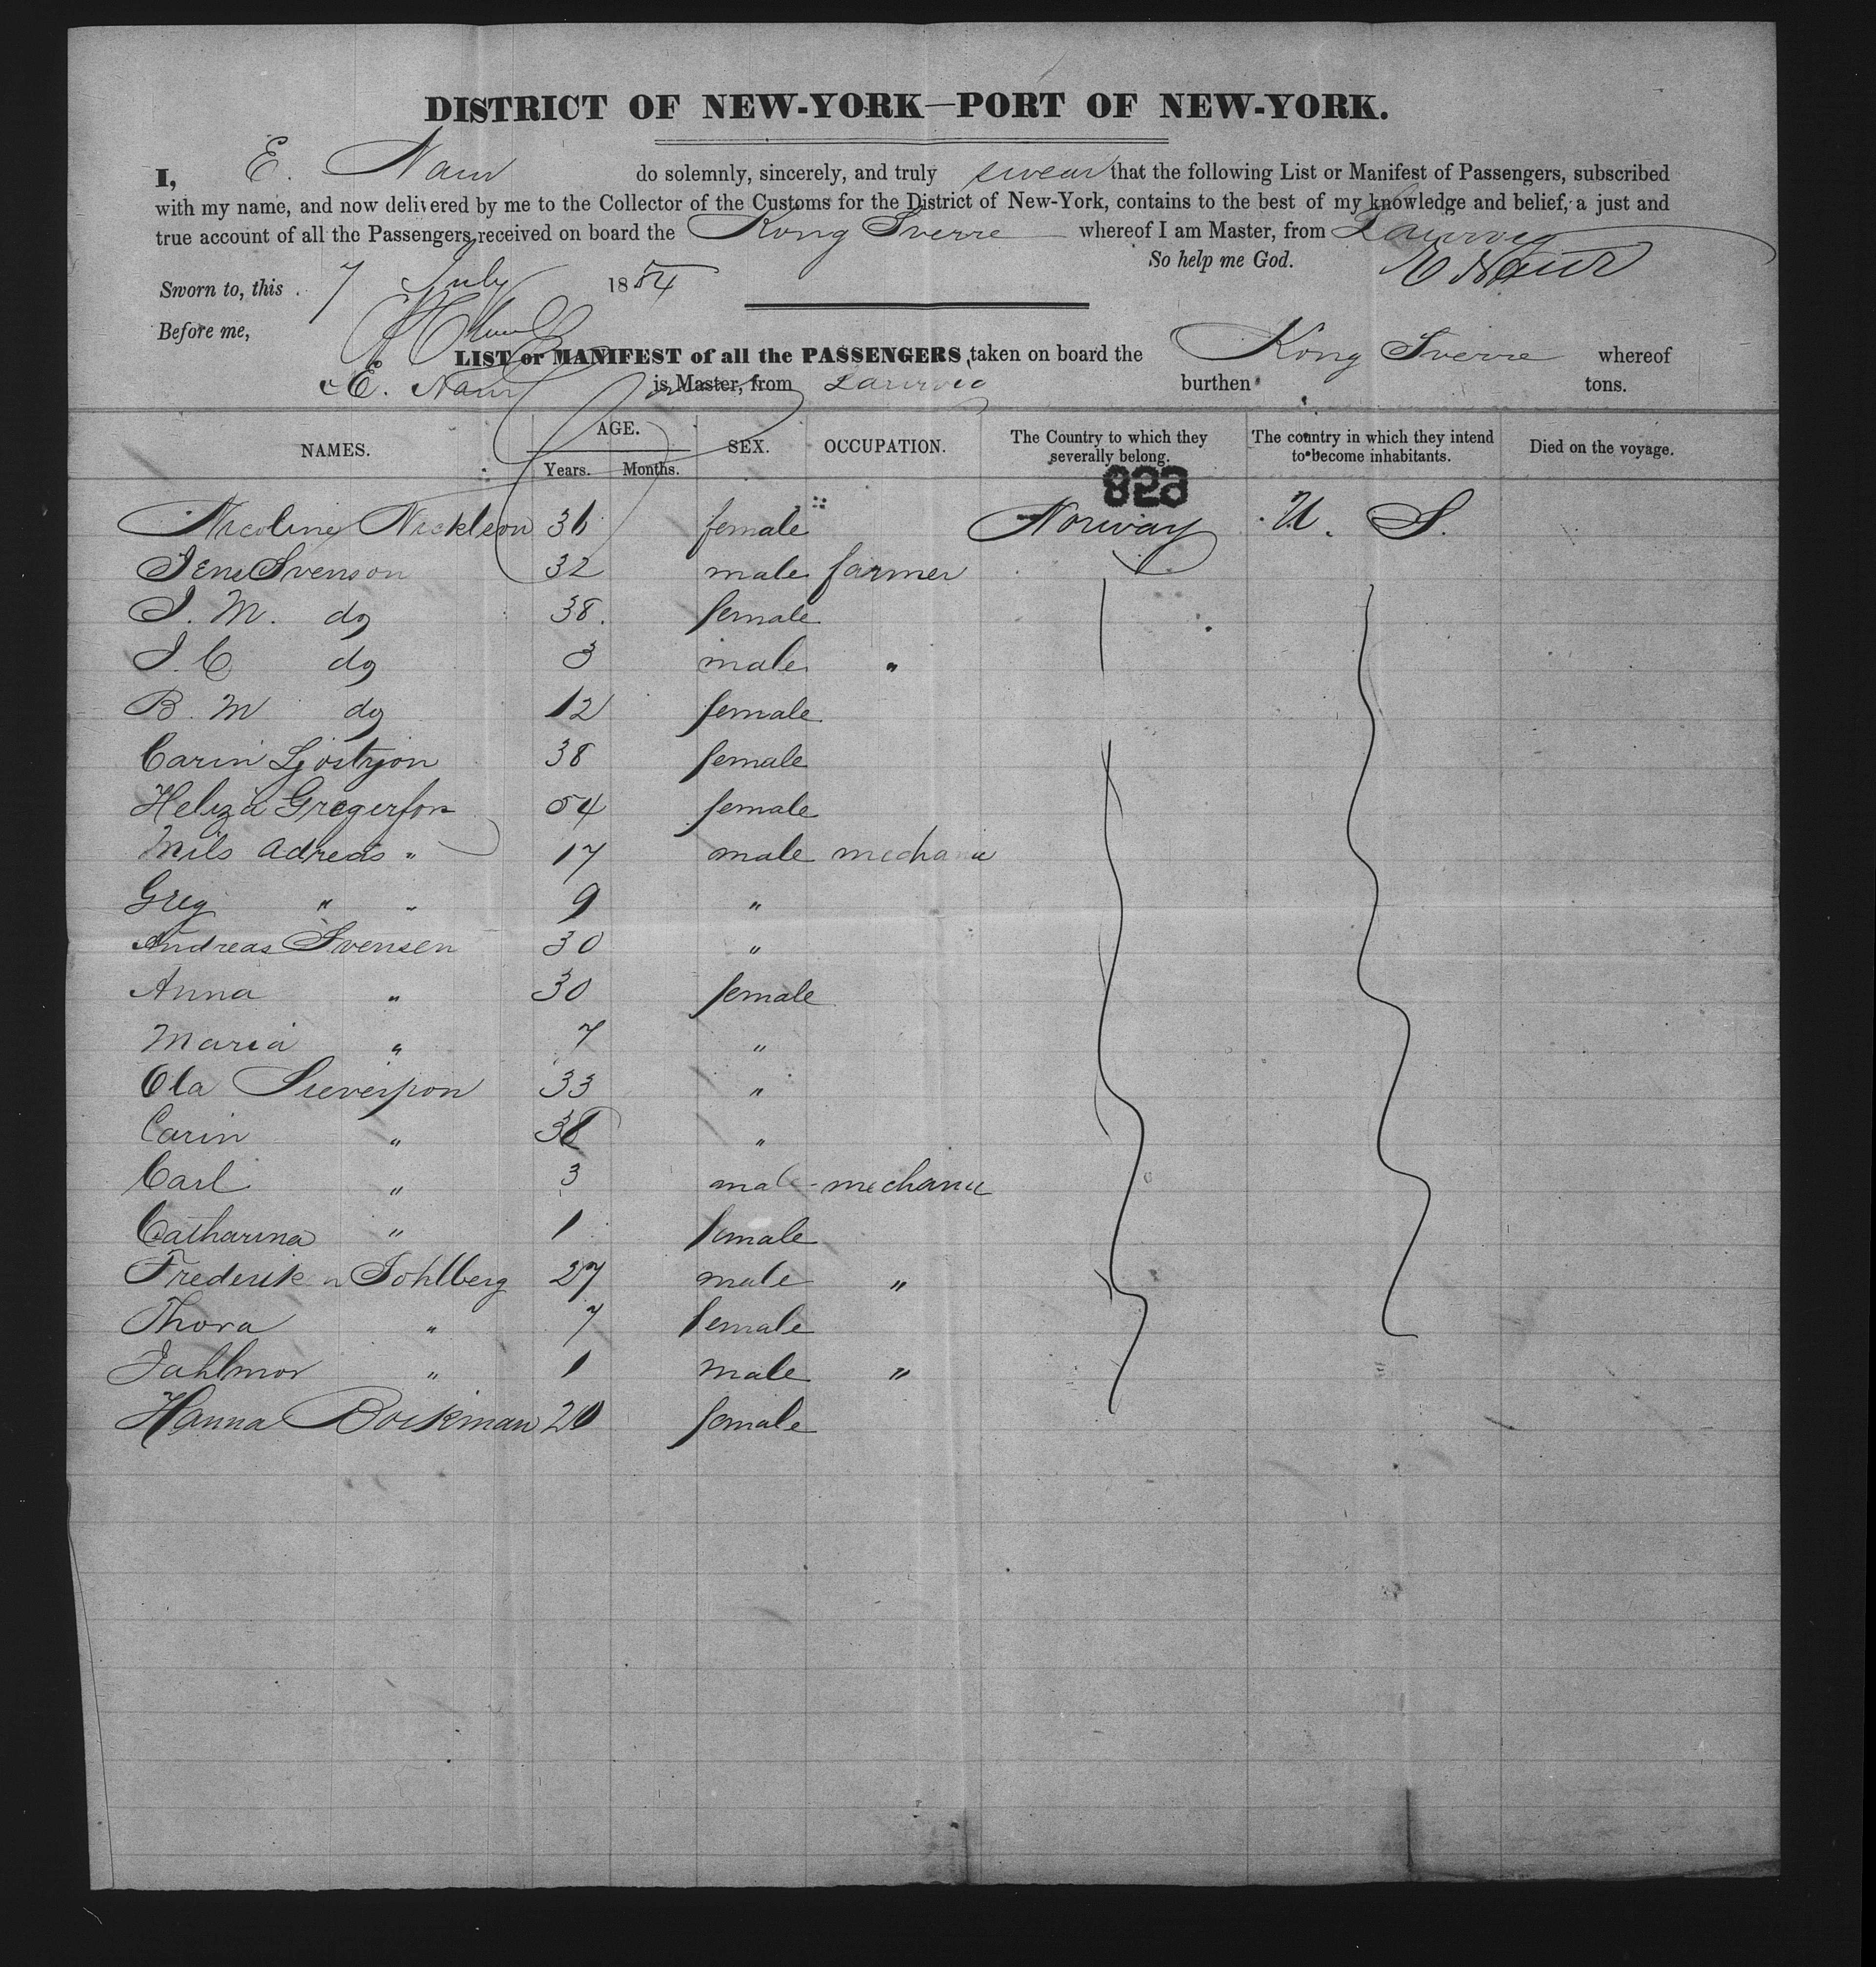 DISTRICT OF NEW-YORK—PORT OF NEW-YORK.
I, E. Naur do solemnly, sincerely, and truly swear that the following List or Manifest of Passengers, subscribed
with my name, and now delivered by me to the Collector of the Customs for the District of New-York, contains to the best of my knowledge and belief, a just and
true account of all the Passengers received on board the Kong Sverre whereof I am Master, from Laurvig
So help me God. E Naur
Sworn to, this 7 July 1854
Before me,
LIST or MANIFEST of all the PASSENGERS taken on board the Kong Sverre whereof
E. Naur is Master, from Laurvig burthen tons.
NAMES. AGE. Years. Months. SEX. OCCUPATION. The Country to which they severally belong. The country in which they intend to become inhabitants. Died on the voyage.
828
Nicoline Nickleon 36 female Norway U. S.
Jens Svenson 32 male farmer
J. M. do 38. female
J. C do 3 male "
B. M do 12 female
Carin 38 female
Heliza Gregerson 54 female
Nils Adreas " 17 male mechanic
Greg " " 9 "
Andreas Svensen 30 "
Anna " 30 female
Maria " 7 "
Ola Sieverson 33 "
Carin " 38 "
Carl " 3 male mechanic
Catharina " 1 female
Frederik Sohlberg 27 male "
Thora " 7 female
" 1 male "
Hanna Bockman 20 female